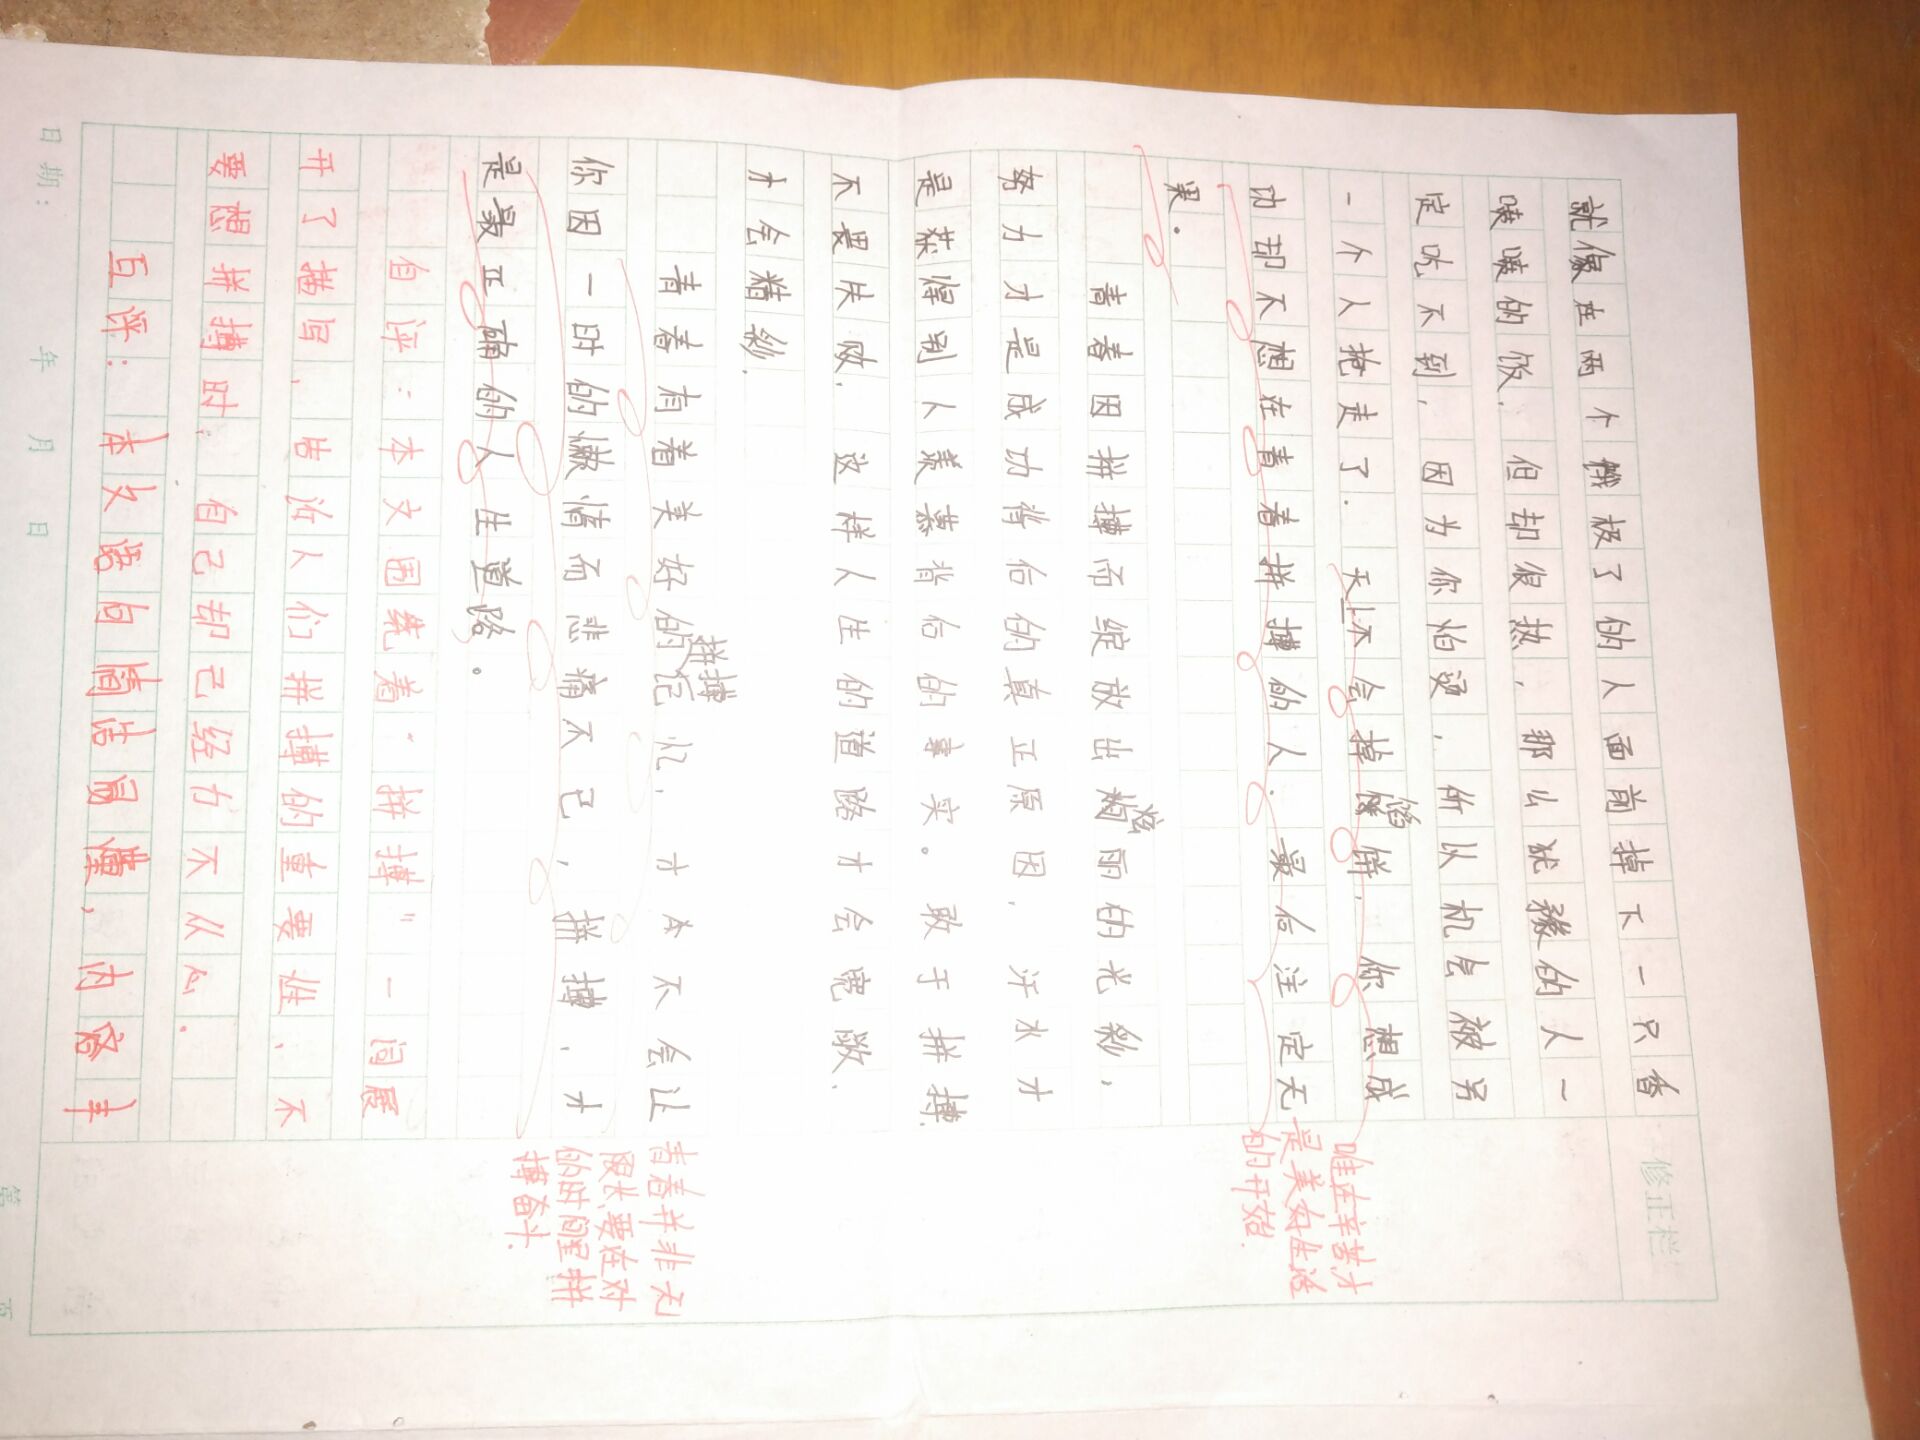 修正栏
就像在两个饿极了的人面前掉下一只香
喷喷的饭，但却很热，那么犹豫的人一
定吃不到，因为你怕烫，所以机会被另
一个人抢走了．天上不会掉馅饼，你想成
功却不想在青春拼搏的人．最后注定无
果．
唯在辛苦才
是美好生活
的开始．
青春因拼搏而绽放出炫丽的光彩，
努力才是成功背后的真正原因，汗水才
是获得别人羡慕背后的事实。敢于拼搏
不畏失败，这样人生的道路才会宽敞，
才会精彩．
青春有着美好的拼搏记忆，才不会让
你因一时的懒惰而悲痛不已，拼搏，才
是最正确的人生道路。
青春并非无
限长，要在对
的时间里拼
搏奋斗．
自评：本文围绕着“拼搏”一词展
开了描写，告诉人们拼搏的重要性，不
要想拼搏时，自己却已经力不从心．
互评：本文语句简洁易懂，内容丰
日期： 年 月 日
第 页